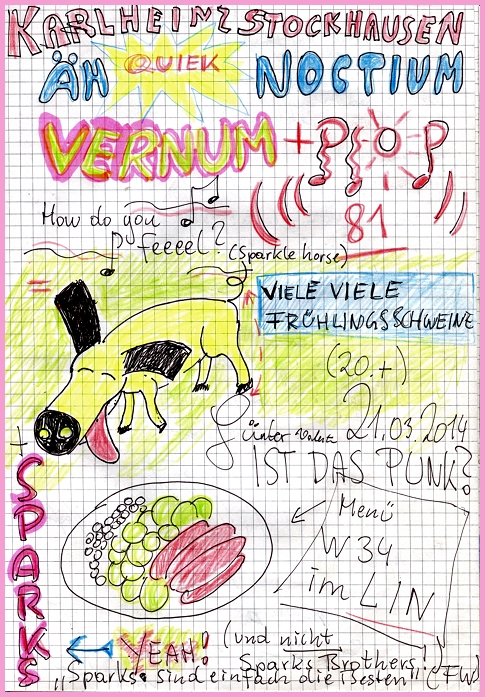 KARLHEINZ STOCKHAUSEN
ÄH QUIEK NOCTIUM
VERNUM + PROP
81
How do you
feeeel? (Sparklehorse)
=
VIELE VIELE
FRÜHLINGSSCHWEINE
(20.+)
21.03.2014
Günter
IST DAS PUNK?
+ SPARKS
← Menü
W34
im LIN
← YEAH! (und nicht
Sparks Brothers!!)
„Sparks sind einfach die Besten" (FW)